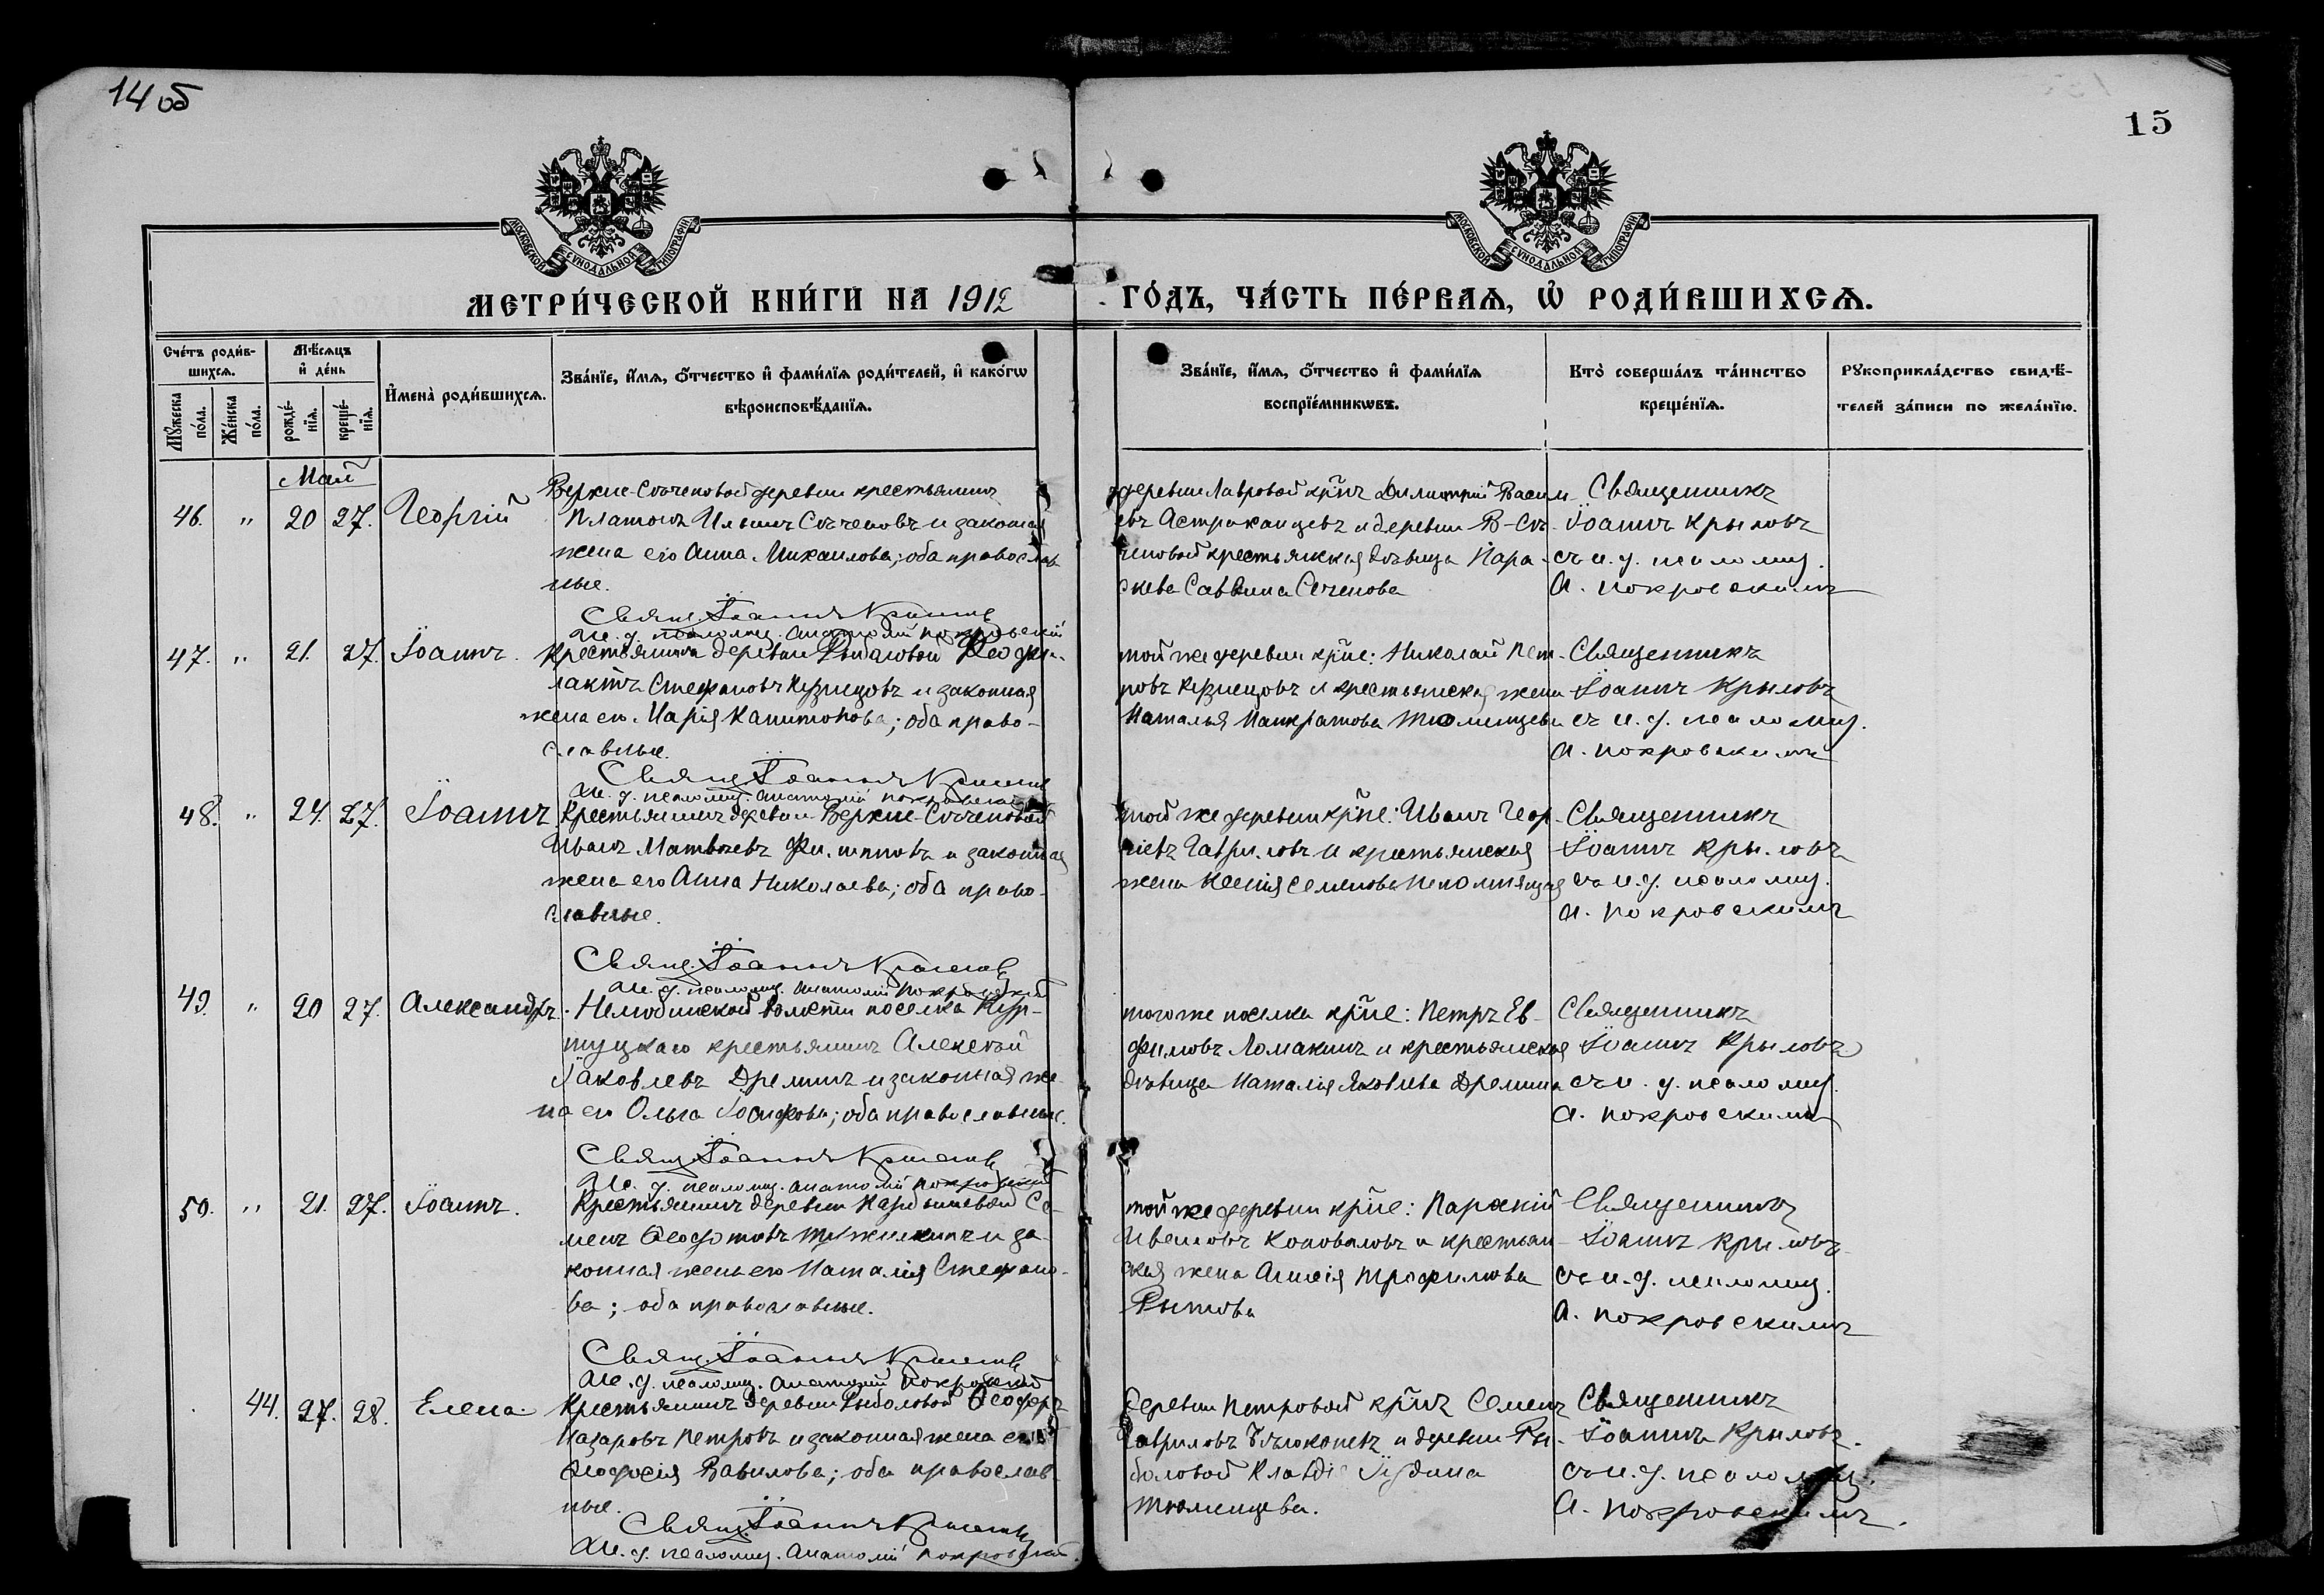 14 об
15
МОСКОВСКОЙ СѴНОДАЛЬНОЙ ТИПОГРАФІИ
МОСКОВСКОЙ СѴНОДАЛЬНОЙ ТИПОГРАФІИ
МЕТРИ́ЧЕСКОЙ КНИ́ГИ НА 1912 ГО́ДЪ, ЧА́СТЬ ПЕ́РВАѦ, Ѡ҆ РОДИ́ВШИХСѦ.
Сче́тъ роди́в-
шихсѧ.
Мꙋ́жеска по́ла.
Же́нска по́ла.
Мѣ́сѧцъ
и҆ де́нь
рожде́-
нїѧ.
креще́-
нїѧ.
И҆мена̀ роди́вшихсѧ.
Зва́нїе, и҆́мѧ, ѻ҆́тчество и҆ фами́лїѧ роди́телей, и҆ како́гѡ
вѣроисповѣ́данїѧ.
Зва́нїе, и҆́мѧ, ѻ҆́тчество и҆ фами́лїѧ
воспрїе́мникѡвъ.
Кто̀ соверша́лъ та́инство
креще́нїѧ.
Рꙋкоприкла́дство свидѣ́-
телей за́писи по жела́нїю.
Май
46. " 20 27. Георгій
Верхне-Сѣченовой деревни крестьянинъ
Платонъ Ильинъ Сѣченовъ и законная
жена его Анна Михаилова; оба православ
ные.
Свящ. Іоаннъ Крыловъ
И. д. псаломщ. Анатолій Покровскій
деревни Лавровой крнъ Димитрій Васил-
евъ Астраханцевъ и деревни В-Сѣ-
ченовой крестьянская дѣвица Пара-
скева Саввина Сеченова
Священникъ
Іоаннъ Крыловъ
съ и. д. псаломщ.
А. Покровскимъ
47. " 21. 27. Іоаннъ.
Крестьянинъ деревни Рыбаловой Феофи-
лактъ Стефановъ Кузнецовъ и законная
жена его Марія Капитонова; оба право-
славные.
Свящ. Іоаннъ Крыловъ
И. д. псаломщ. Анатолій Покровскій
той же деревни крне: Николай Пет-
ровъ Кузнецовъ и крестьянская жена
Наталья Панкратова Тюменцева
Священникъ
Іоаннъ Крыловъ
съ и. д. псаломщ.
А. Покровскимъ
48. " 24. 27. Іоаннъ
Крестьянинъ деревни Верхне-Сѣченовой
Иванъ Матвѣевъ Филипповъ и законная
жена его Анна Николаева; оба право-
славные.
Свящ. Іоаннъ Крыловъ
И. д. псаломщ. Анатолій Покровскій
той же деревни крне: Иванъ Геор-
гіевъ Гавриловъ и крестьянская
жена Ксенія Семенова Непомнящая
Священникъ
Іоаннъ Крыловъ
съ и. д. псаломщ.
А. Покровскимъ
49. " 20 27. Александръ.
Нелюбинской волости поселка Кур-
крестьянинъ Алексѣй
Іаковлевъ Дреминъ и законная же-
на его Ольга Іосифова; оба православные.
Свящ. Іоаннъ Крыловъ
И. д. псаломщ. Анатолій Покровскій
того же поселка крне: Петръ Ев-
фимовъ Ломакинъ и крестьянская
дѣвица Наталія Яковлева Дремина
Священникъ
Іоаннъ Крыловъ
съ и. д. псаломщ.
А. Покровскимъ
50. " 21. 27. Іоаннъ.
Крестьянинъ деревни Карбышевой Се-
менъ Феодотовъ и за-
конная жена его Наталія Стефано-
ва; оба православные.
Свящ. Іоаннъ Крыловъ
И. д. псаломщ. Анатолій Покровскій
той же деревни крне:
Коноваловъ и крестьян-
ская жена Анисія Трофимова
Рытова
Священникъ
Іоаннъ Крыловъ
съ и. д. псаломщ.
А. Покровскимъ
44. 27. 28. Елена.
Крестьянинъ деревни Рыболовой Ѳеодоръ
Назаровъ Петровъ и законная жена его
Ѳеодосія Вавилова; оба православ-
ные.
Свящ. Іоаннъ Крыловъ
И. д. псаломщ. Анатолій Покровскій.
деревни Петровой крнъ Семенъ
Гавриловъ Бѣлоконевъ и деревни Ры-
боловой Клавдія Іудина
Тюменцева.
Священникъ
Іоаннъ Крыловъ.
съ и. д. псаломщ.
А. Покровскимъ.